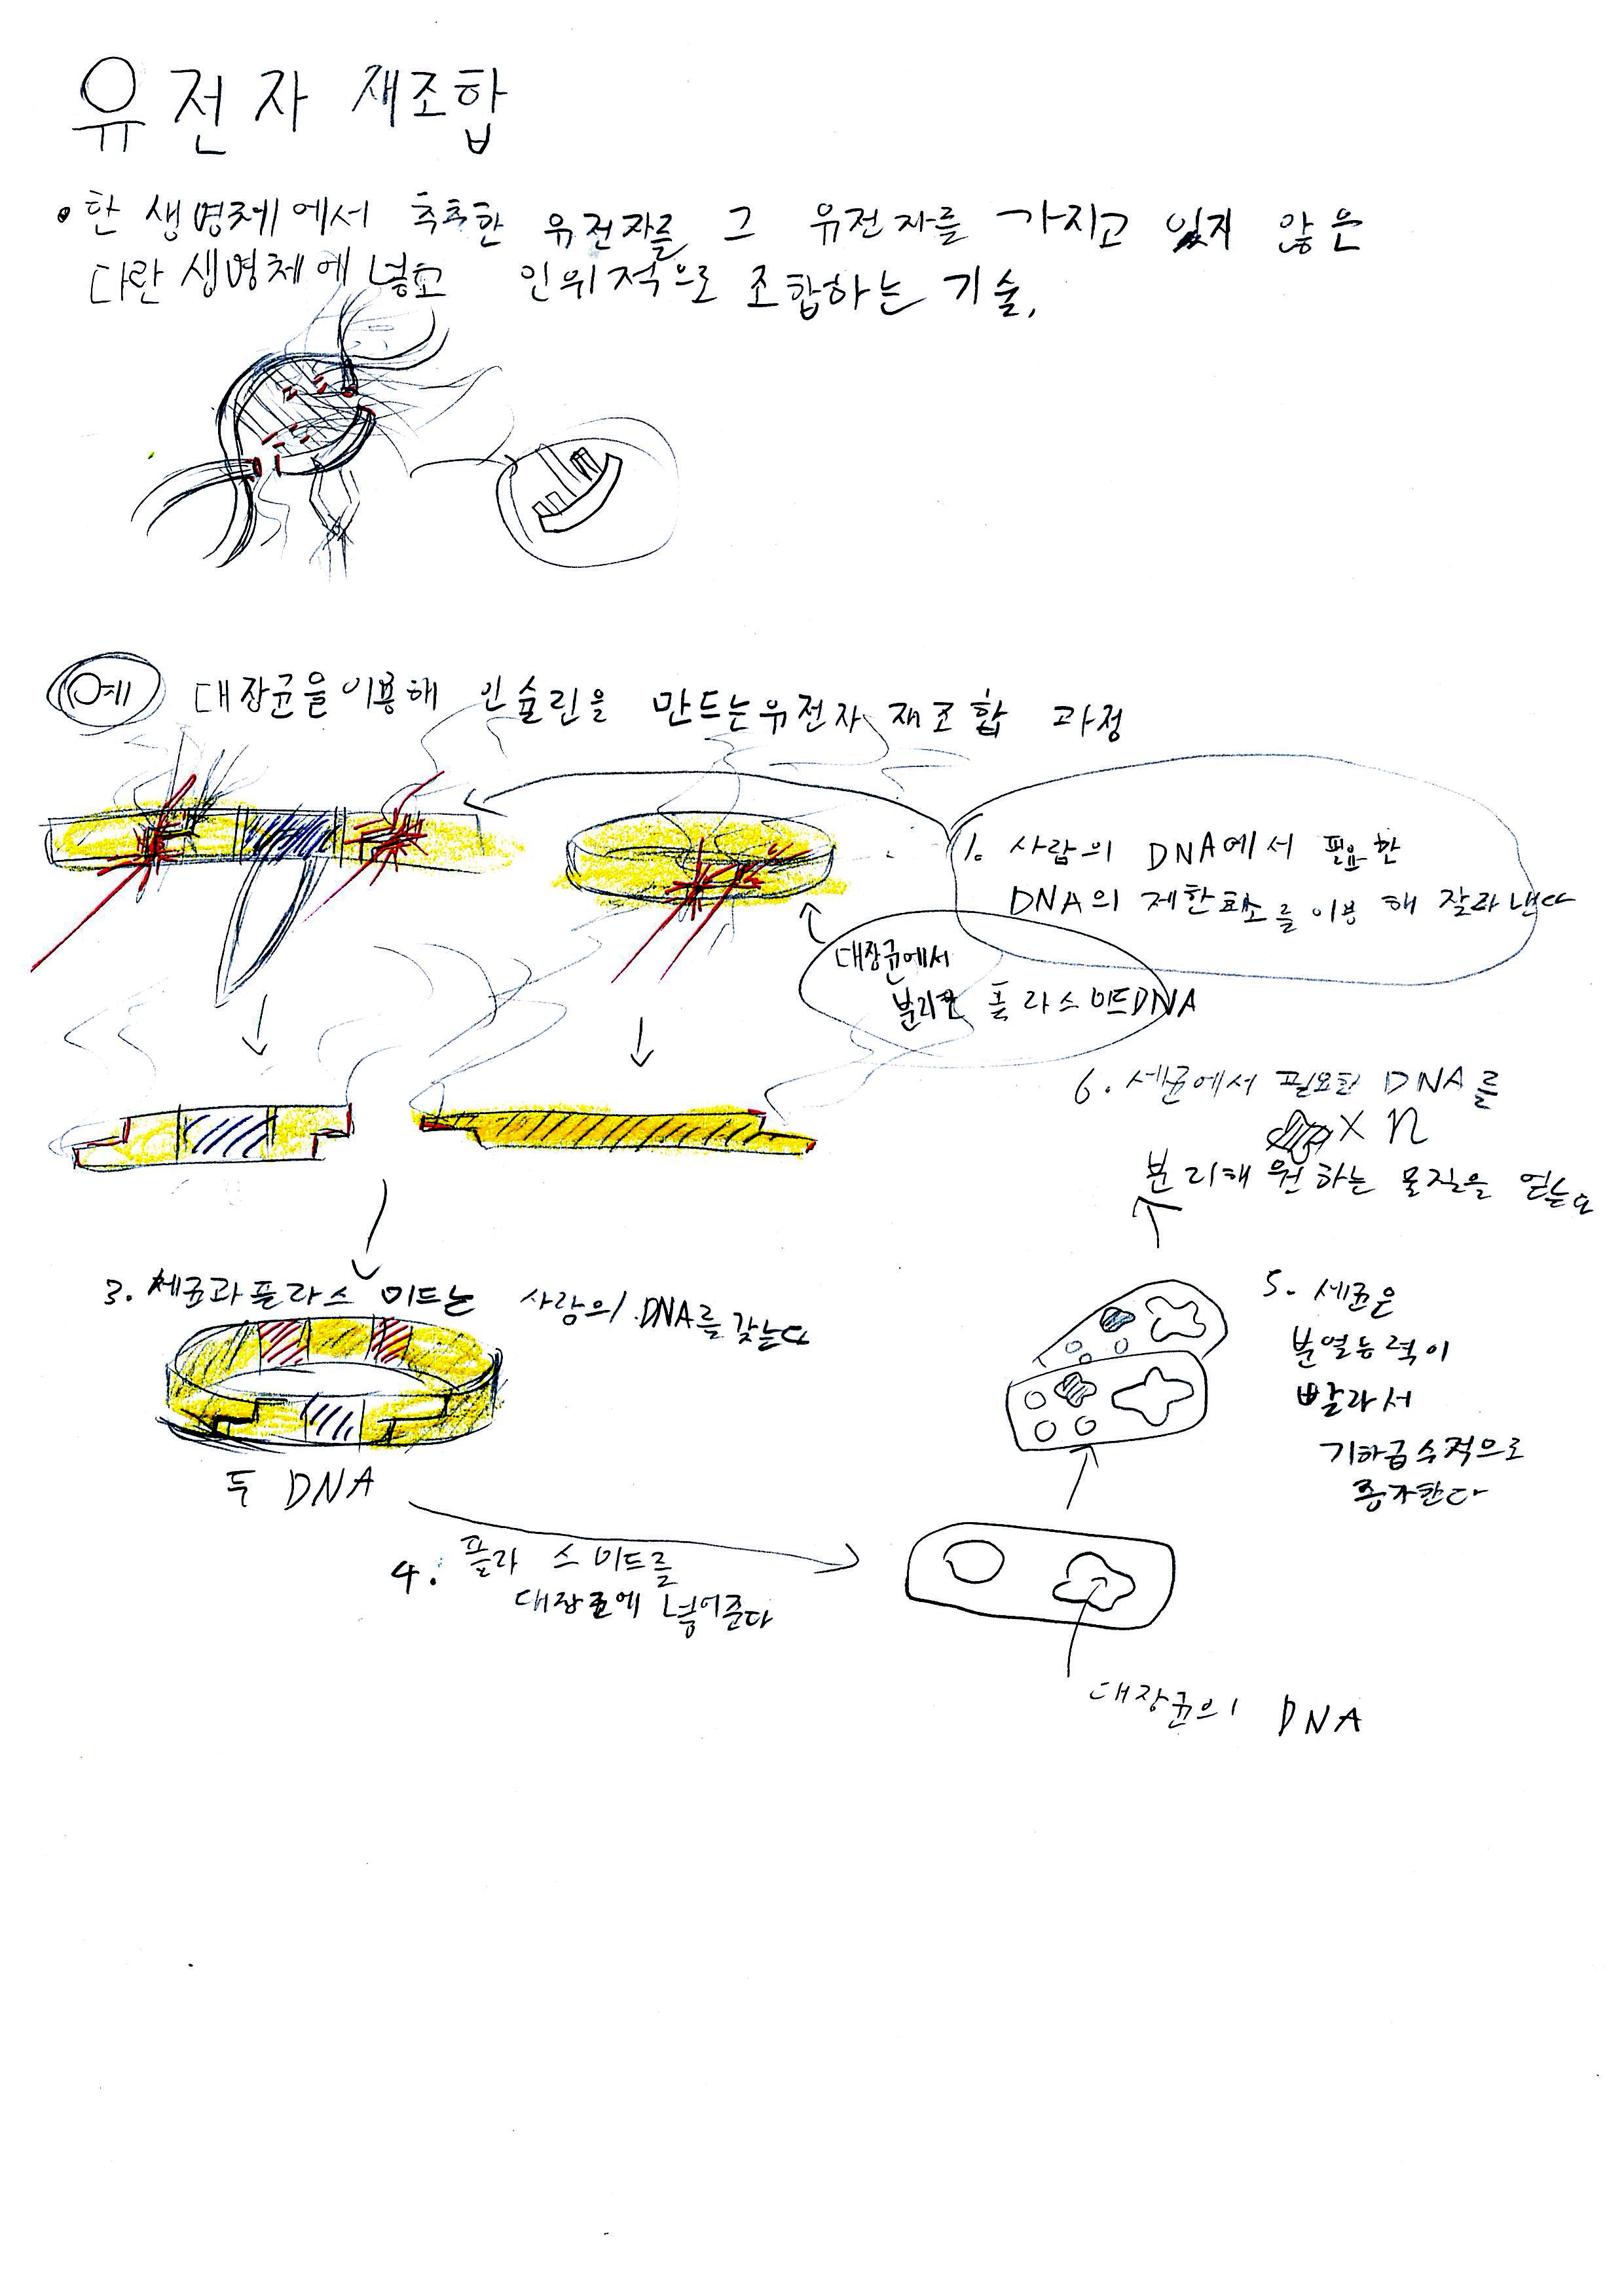 유전자 재조합
• 한 생명체에서 추출한 유전자를 그 유전자를 가지고 있지 않은
다란 생명체에 넣고 인위적으로 조합하는 기술.
예 대장균을 이용해 인슐린을 만드는 유전자 재조합 과정
1. 사람의 DNA에서 필요한
DNA의 제한효소를 이용해 잘라낸다
대장균에서
분리한 플라스미드DNA
3. 세균과 플라스미드는 사람의 DNA를 갖는다
두 DNA
4. 플라스미드를
대장균에 넣어준다
대장균의 DNA
5. 세균은
분열능력이
빨라서
기하급수적으로
증가한다
6. 세균에서 필요한 DNA를
x n
분리해 원하는 물질을 얻는다